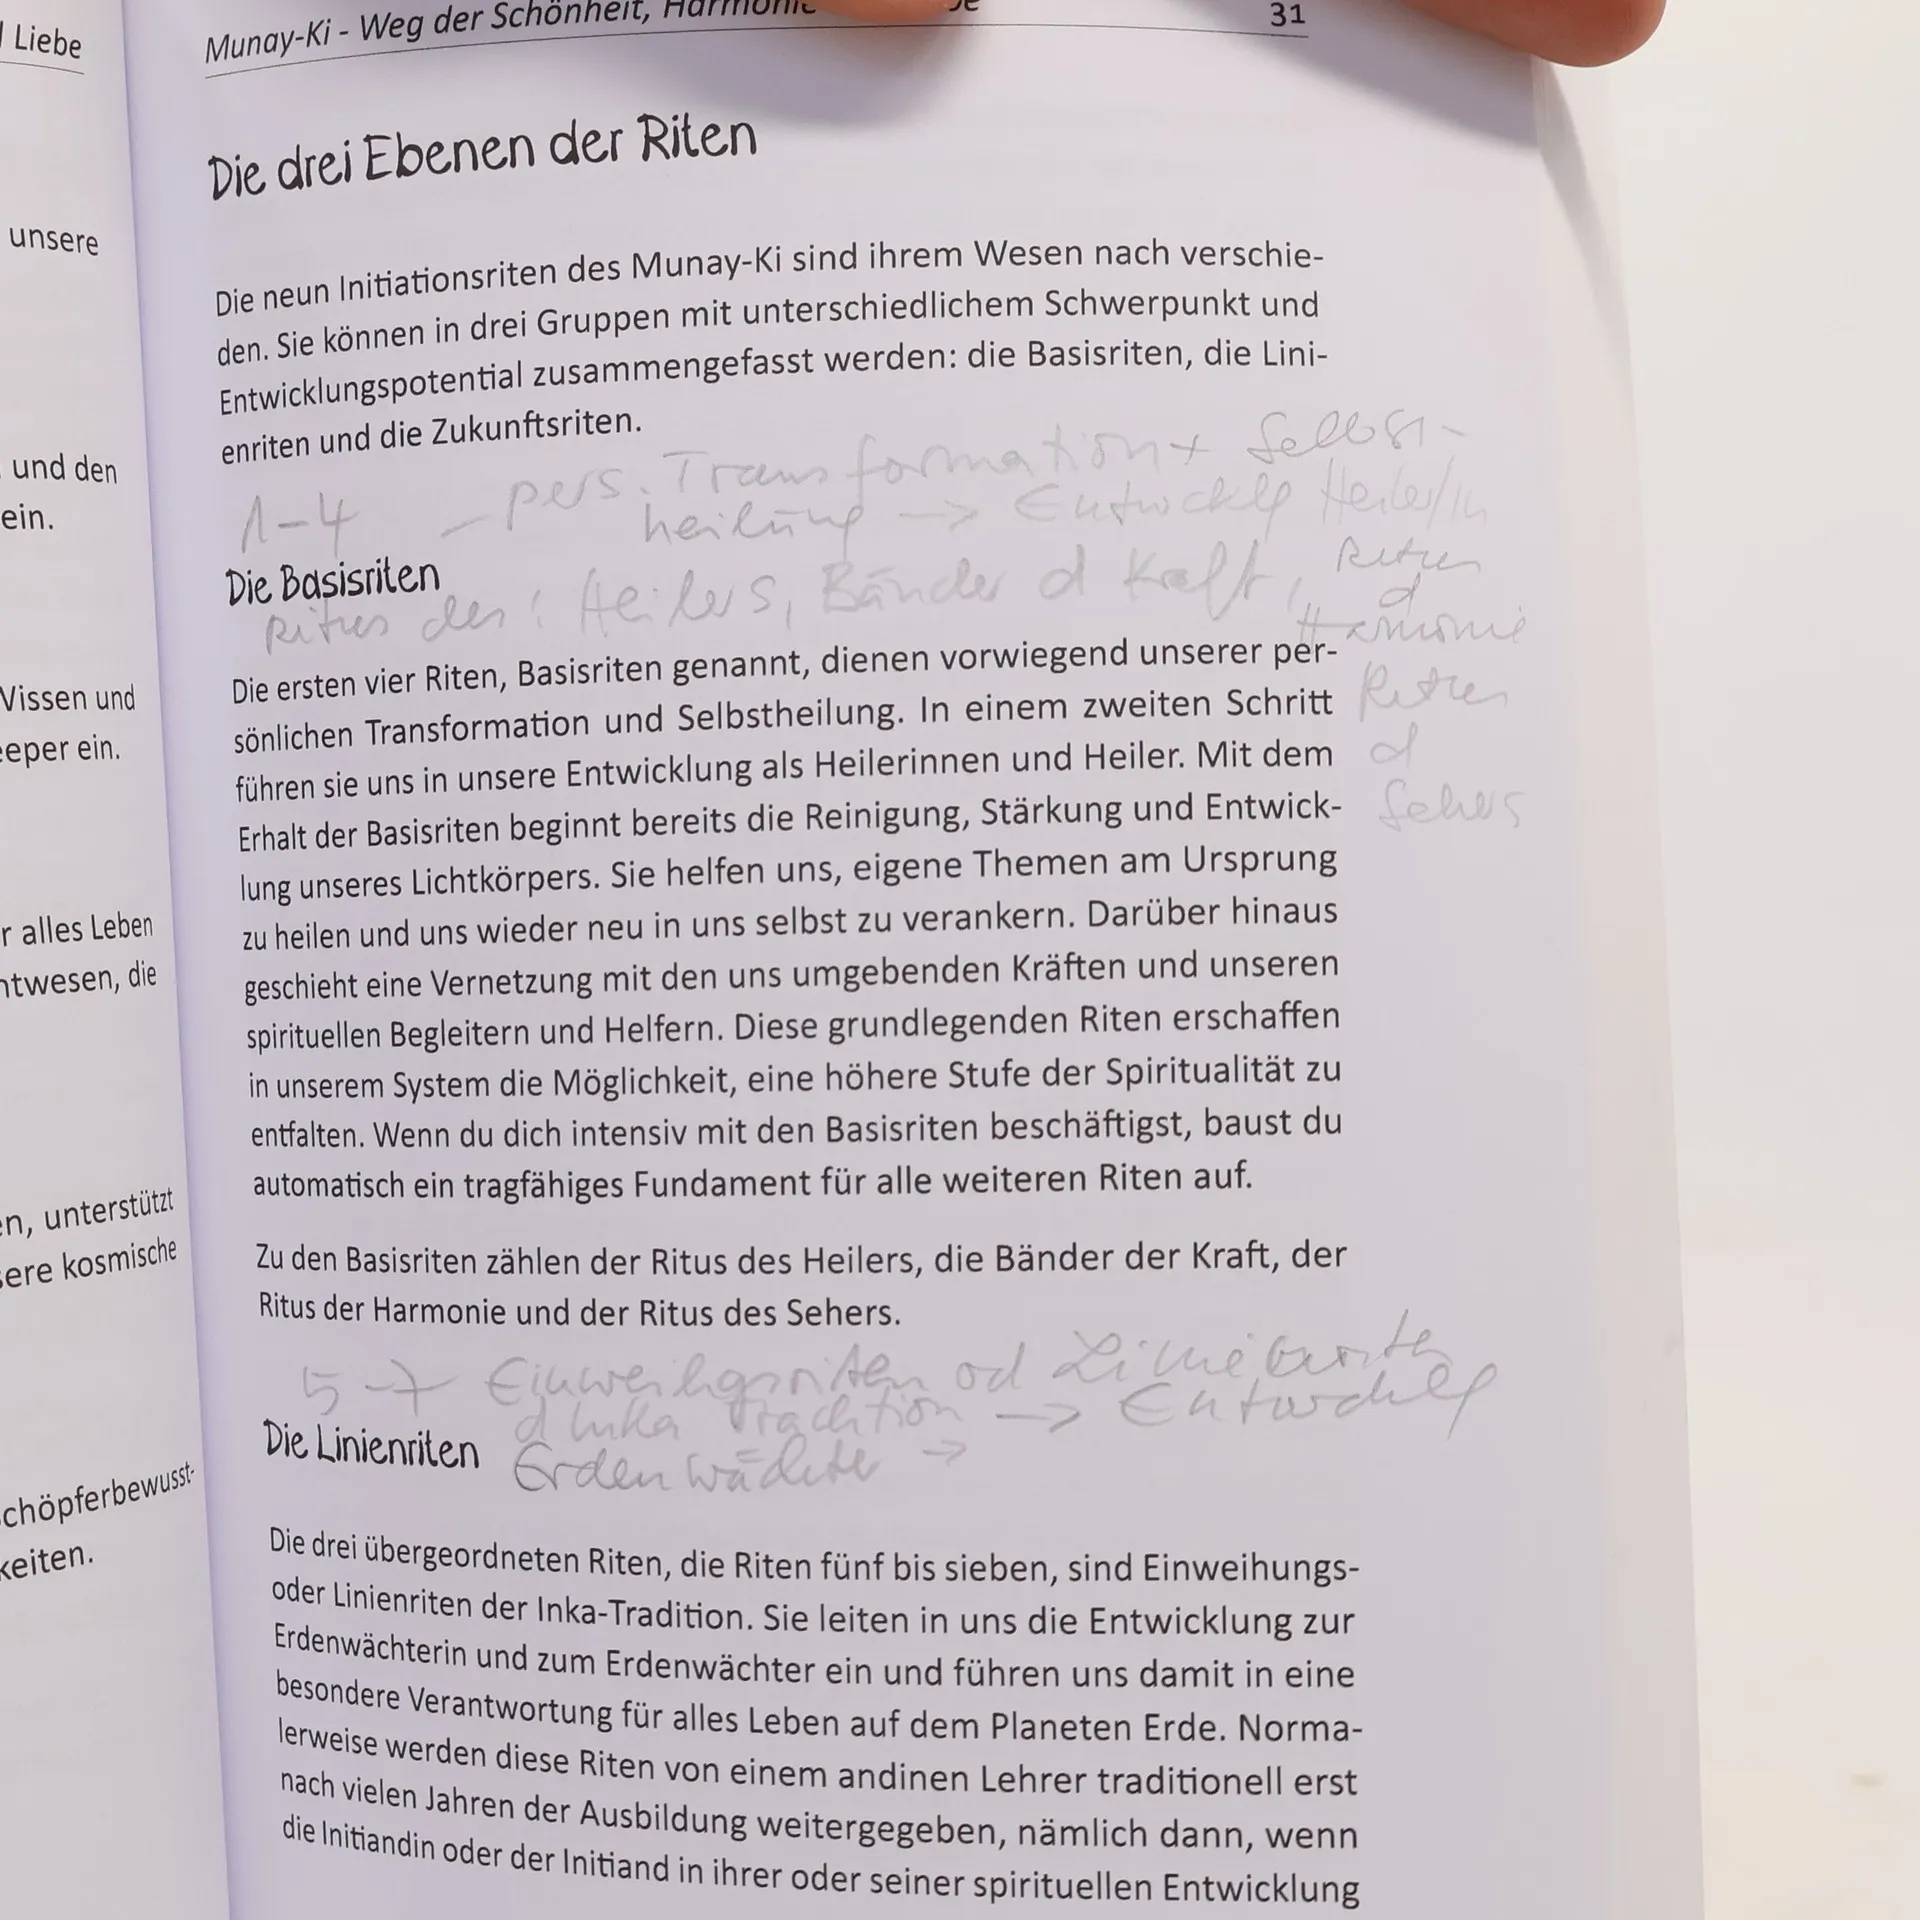 Liebe
unsere
und den
ein.
Wissen und
eeper ein.
r alles Leben
htwesen, die
en, unterstützt
sere kosmische
chöpferbewusst-
keiten.
Munay-Ki - Weg der Schönheit, Harmonie
31
Die drei Ebenen der Riten
Die neun Initiationsriten des Munay-Ki sind ihrem Wesen nach verschie-
den. Sie können in drei Gruppen mit unterschiedlichem Schwerpunkt und
Entwicklungspotential zusammengefasst werden: die Basisriten, die Lini-
enriten und die Zukunftsriten.
1-4 - pers. Transformation + Selbst-
heilung → Entwicklg Heiler/in
Die Basisriten
Ritus des: Heilers, Bänder d Kraft, Ritus
d
Harmonie
Ritus
d
Sehers
Die ersten vier Riten, Basisriten genannt, dienen vorwiegend unserer per-
sönlichen Transformation und Selbstheilung. In einem zweiten Schritt
führen sie uns in unsere Entwicklung als Heilerinnen und Heiler. Mit dem
Erhalt der Basisriten beginnt bereits die Reinigung, Stärkung und Entwick-
lung unseres Lichtkörpers. Sie helfen uns, eigene Themen am Ursprung
zu heilen und uns wieder neu in uns selbst zu verankern. Darüber hinaus
geschieht eine Vernetzung mit den uns umgebenden Kräften und unseren
spirituellen Begleitern und Helfern. Diese grundlegenden Riten erschaffen
in unserem System die Möglichkeit, eine höhere Stufe der Spiritualität zu
entfalten. Wenn du dich intensiv mit den Basisriten beschäftigst, baust du
automatisch ein tragfähiges Fundament für alle weiteren Riten auf.
Zu den Basisriten zählen der Ritus des Heilers, die Bänder der Kraft, der
Ritus der Harmonie und der Ritus des Sehers.
5-7 Einweihgsriten od Linienriten
d Inka Tradition → Entwicklg
Die Linienriten
Erdenwächter →
Die drei übergeordneten Riten, die Riten fünf bis sieben, sind Einweihungs-
oder Linienriten der Inka-Tradition. Sie leiten in uns die Entwicklung zur
Erdenwächterin und zum Erdenwächter ein und führen uns damit in eine
besondere Verantwortung für alles Leben auf dem Planeten Erde. Norma-
lerweise werden diese Riten von einem andinen Lehrer traditionell erst
nach vielen Jahren der Ausbildung weitergegeben, nämlich dann, wenn
die Initiandin oder der Initiand in ihrer oder seiner spirituellen Entwicklung